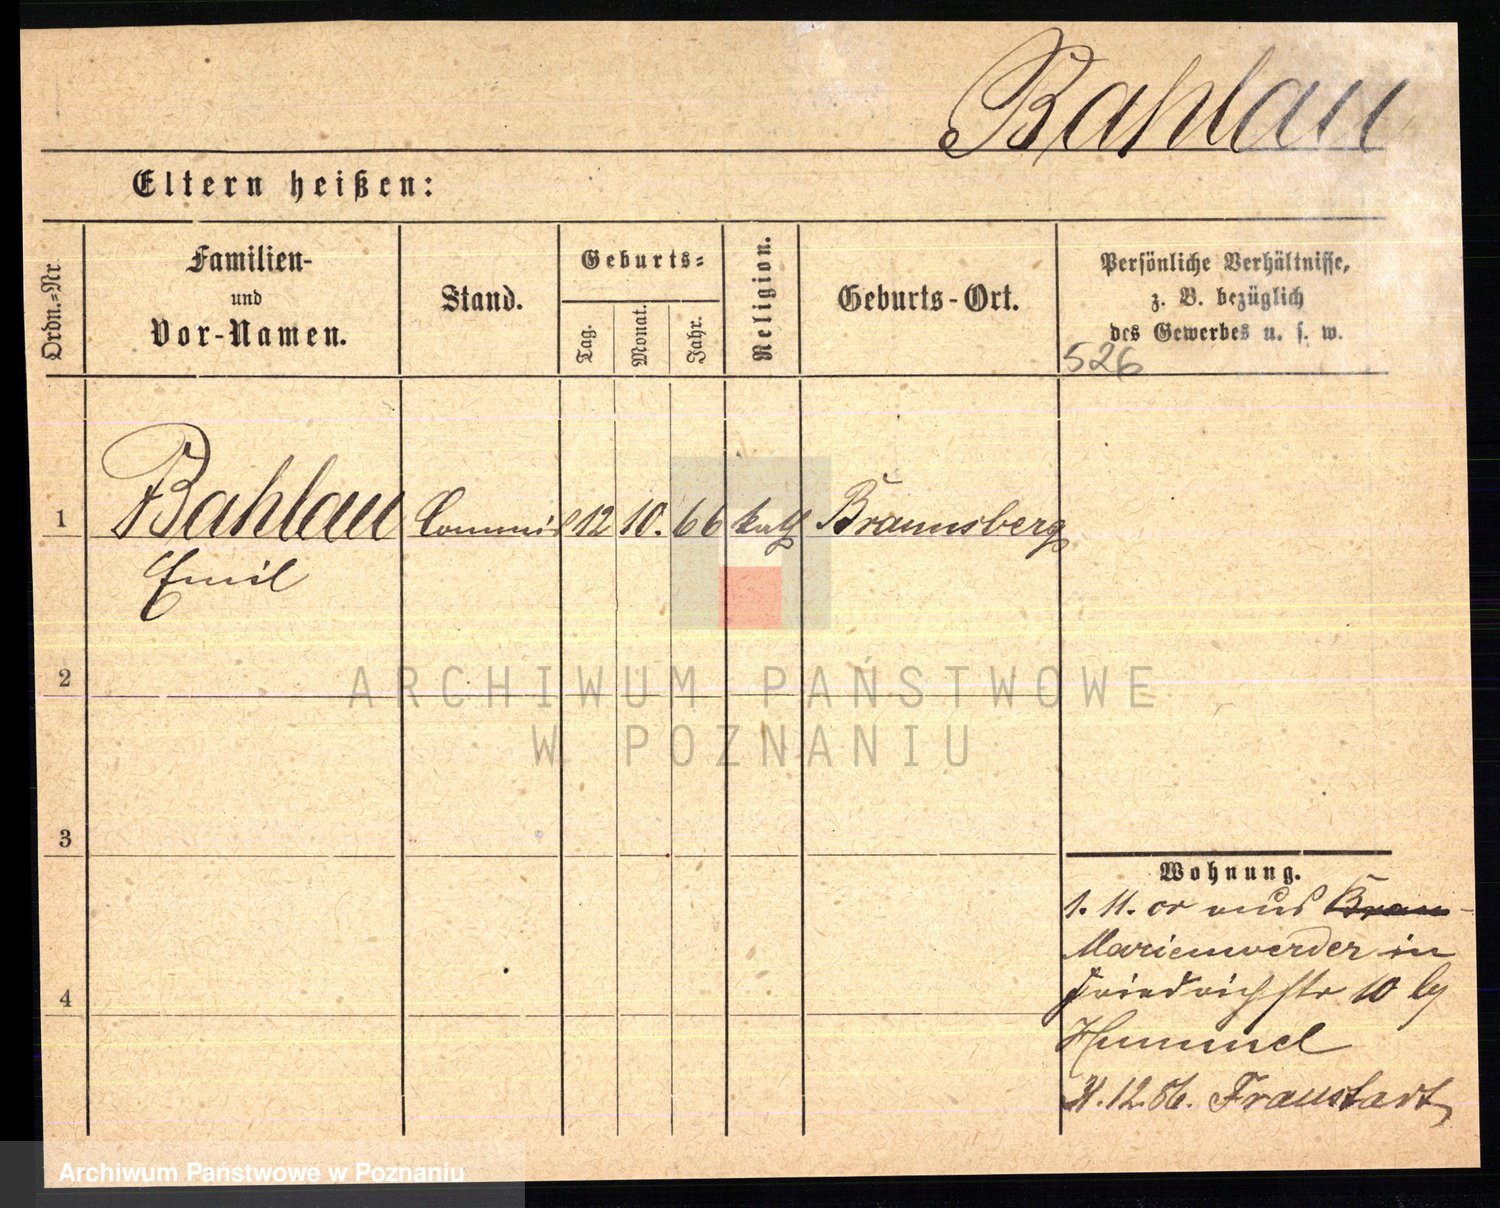 Bahlau
Eltern heißen:
Ordn.=Nr.
Familien-
und
Vor-Namen.
Stand.
Geburts=
Tag.
Monat.
Jahr.
Religion.
Geburts-Ort.
Persönliche Verhältnisse,
z. B. bezüglich
des Gewerbes u. s. w.
526
1 Bahlau Commis 12 10. 66 kath Braunsberg
Emil
2
3
4
Wohnung.
1. 11. cr aus Brau-
Marienwerder in
Friedrichstr 10 by
Hummel
31.12.86. Fraustadt
ARCHIWUM PAŃSTWOWE
W POZNANIU
Archiwum Państwowe w Poznaniu